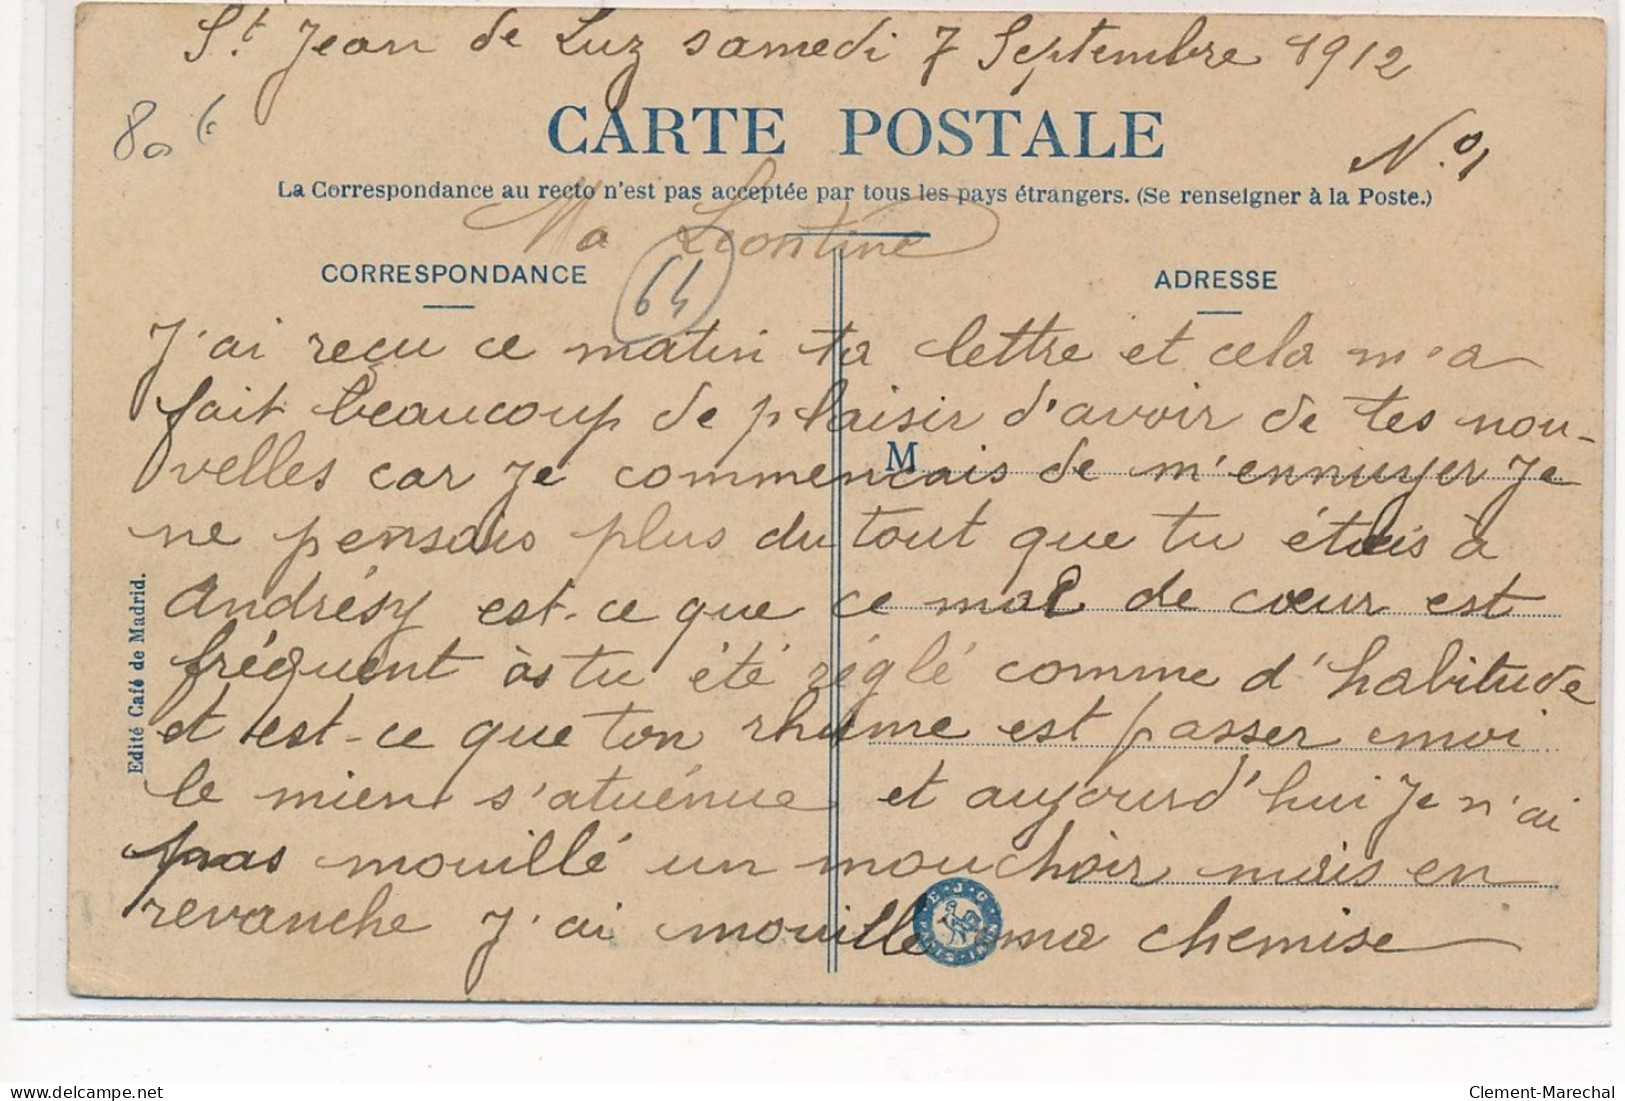 St Jean de Luz samedi 7 Septembre 1912
806
CARTE POSTALE
N.º1
La Correspondance au recto n'est pas acceptée par tous les pays étrangers. (Se renseigner à la Poste.)
Ma Léontine
64
CORRESPONDANCE
ADRESSE
J'ai reçu ce matin ta lettre et cela m'a
fait beaucoup de plaisir d'avoir de tes nou-
velles car Je commencais de m'ennuyer Je
M
ne pensais plus du tout que tu étais à
Andrésy est-ce que ce mal de cœur est
fréquent às tu été réglé comme d'habitude
et est-ce que ton rhume est passer emoi
le mien s'atuénue et aujourd'hui Je n'ai
pas mouillé un mouchoir mais en
revanche J'ai mouille ma chemise
Edité Café de Madrid.
Clement-Marechal
https://www.delcampe.net